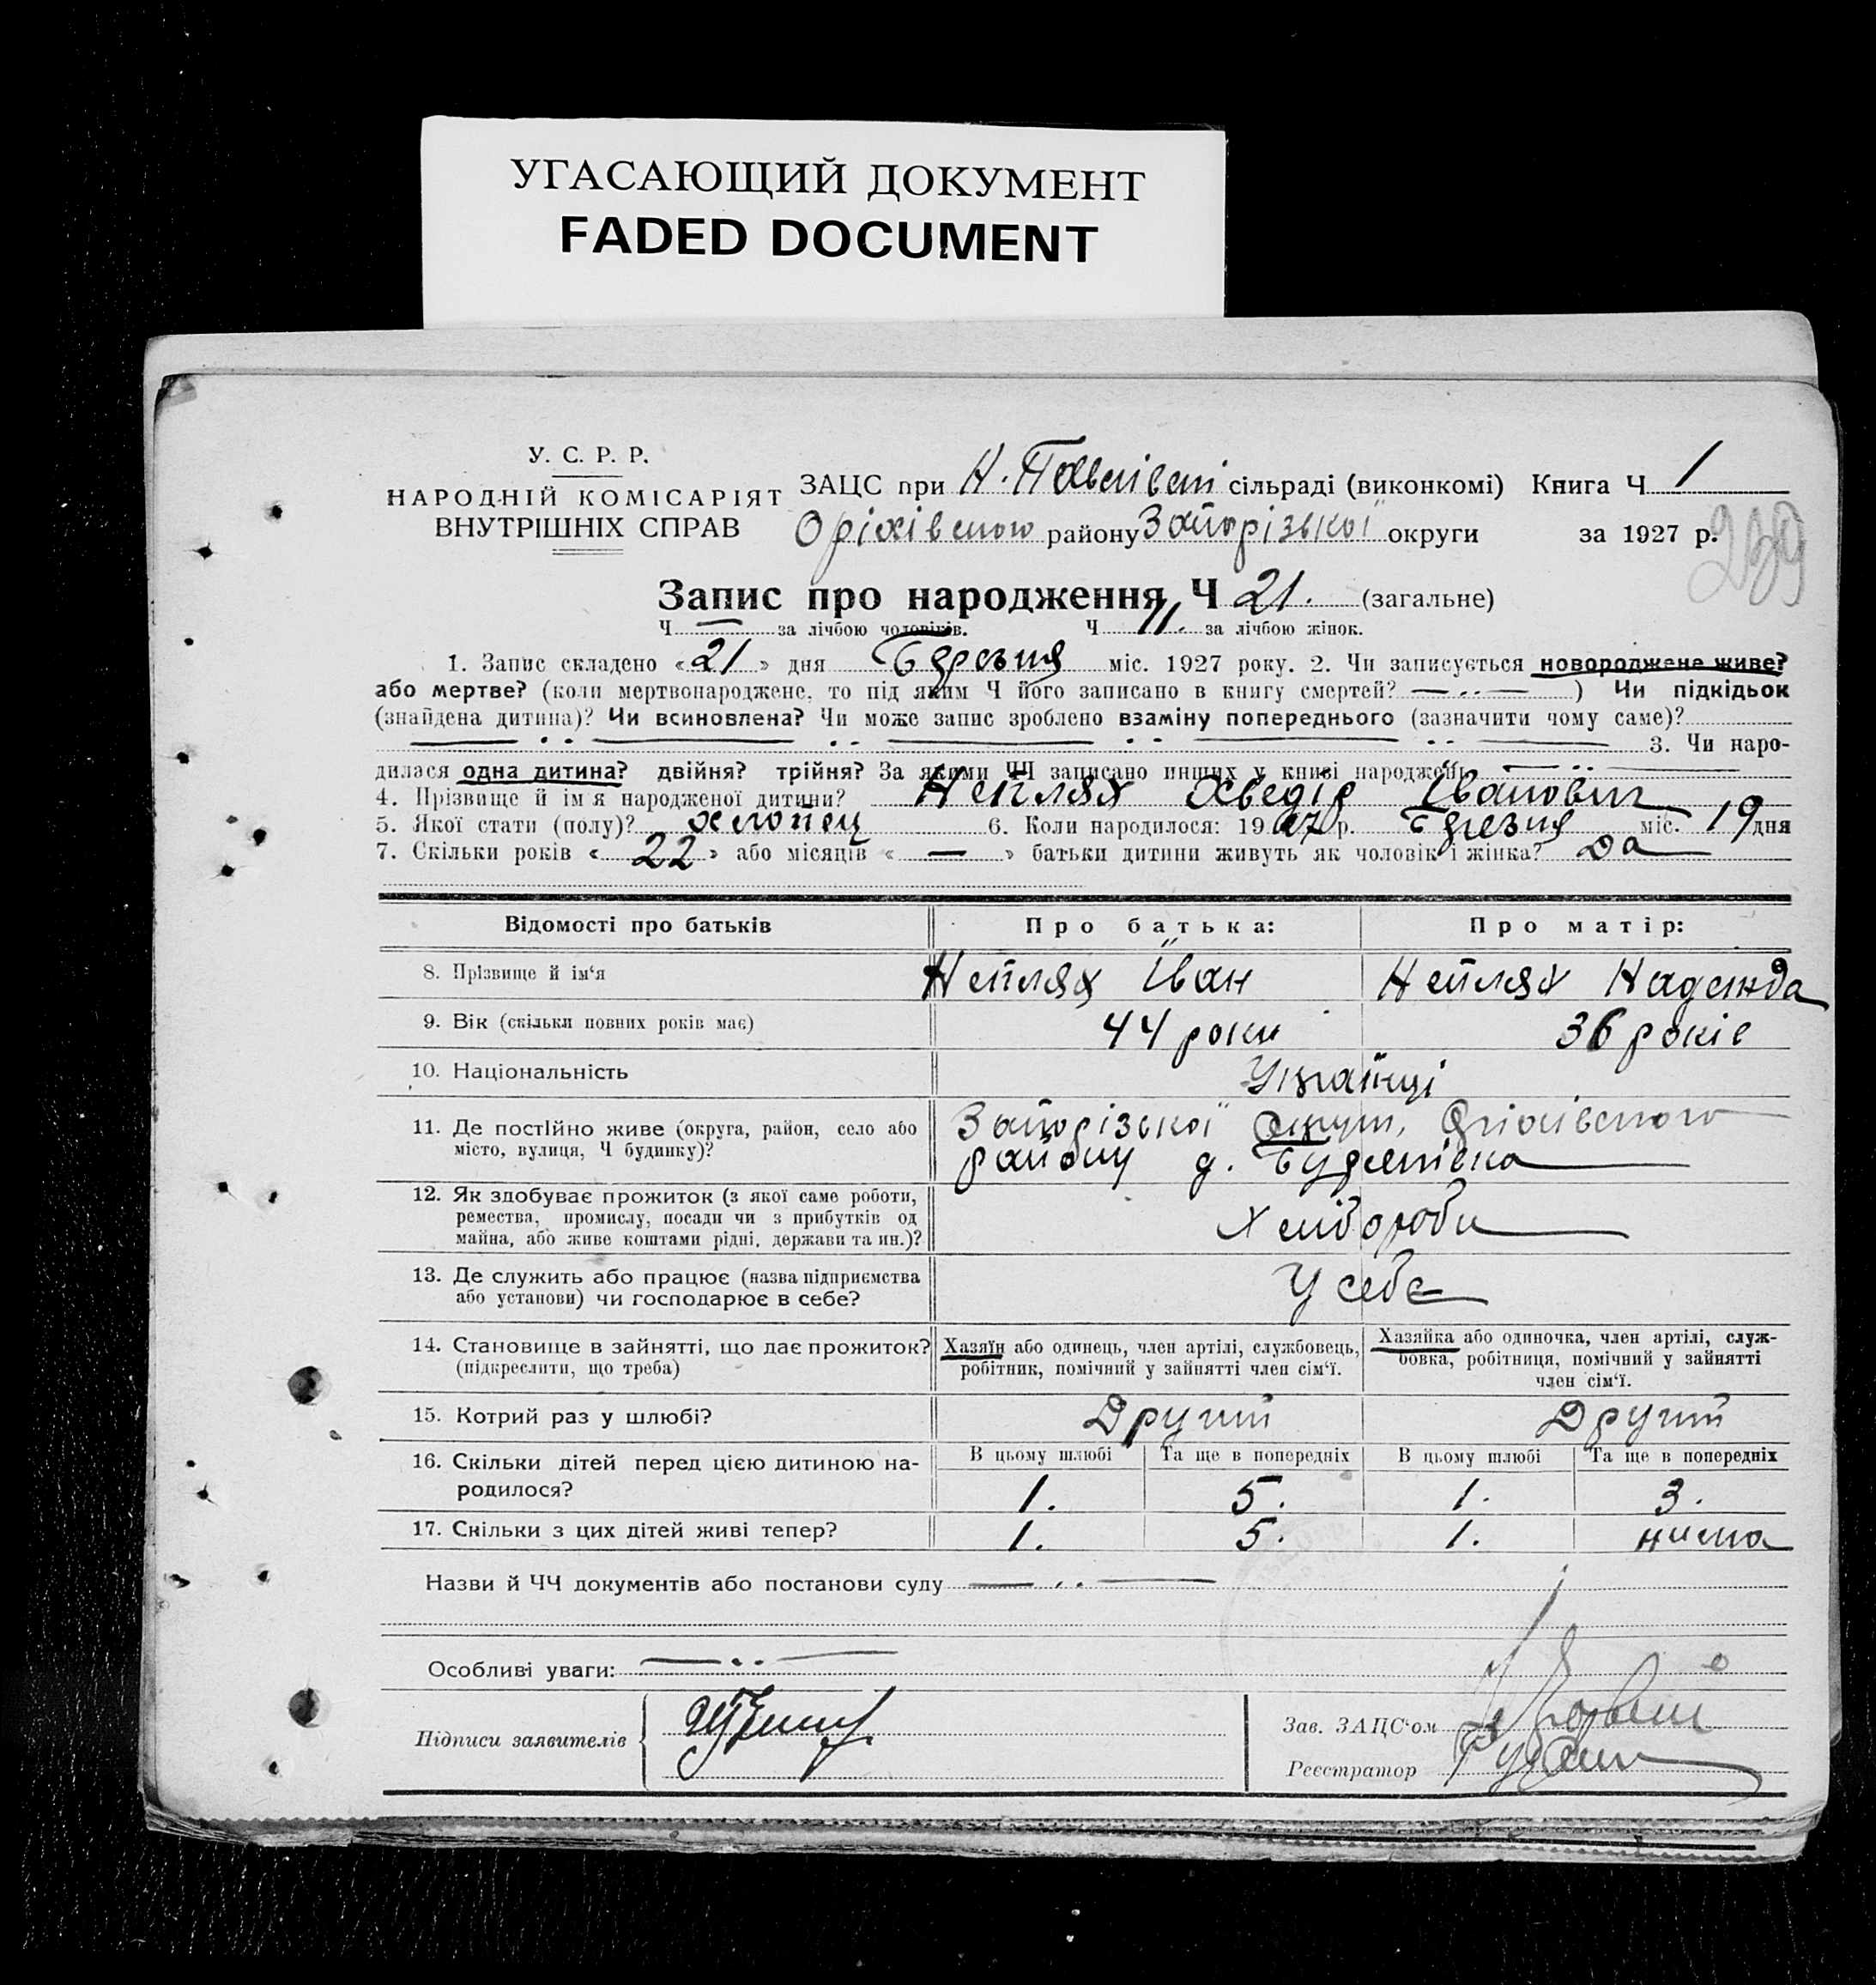 УГАСАЮЩИЙ ДОКУМЕНТ
FADED DOCUMENT
У. С. Р. Р.
НАРОДНІЙ КОМІСАРІЯТ
ВНУТРІШНІХ СПРАВ
ЗАЦС при Н. Павлівсті сільраді (виконкомі) Книга Ч 1
Оріхівского району Запорізької округи за 1927 р. 239
Запис про народження Ч 21. (загальне)
Ч — за лічбою чоловіків. Ч 11. за лічбою жінок.
1. Запис складено «21» дня Березня міс. 1927 року. 2. Чи записується новороджене живе?
або мертве? (коли мертвонароджене, то під яким Ч його записано в книгу смертей? — .. — ) Чи підкідьок
(знайдена дитина)? Чи всиновлена? Чи може запис зроблено взаміну попереднього (зазначити чому саме)?
— .. — .. — .. — .. — 3. Чи наро-
дилася одна дитина? двійня? трійня? За якими ЧЧ записано инших у книзі народжень — .. —
4. Прізвище й ім'я народженої дитини? Неплях Хведір Іванович
5. Якої стати (полу)? хлопец 6. Коли народилося: 1927 р. Березня міс. 19 дня
7. Скільки років «22» або місяців « — » батьки дитини живуть як чоловік і жінка? Да
Відомості про батьків Про батька: Про матір:
8. Прізвище й ім'я Неплях Іван Неплях Надежда
9. Вік (скільки повних років має) 44 роки 36 років
10. Національність Українці
11. Де постійно живе (округа, район, село або Запорізької округ, Оріхівского
місто, вулиця, Ч будинку)? району д.
12. Як здобуває прожиток (з якої саме роботи,
ремества, промислу, посади чи з прибутків од Хлібороби
майна, або живе коштами рідні, держави та ин.)?
13. Де служить або працює (назва підприємства У себе
або установи) чи господарює в себе?
14. Становище в зайнятті, що дає прожиток? Хазяїн або одинець, член артілі, службовець, Хазяйка або одиночка, член артілі, служ-
(підкреслити, що треба) робітник, помічний у зайнятті член сім'ї. бовка, робітниця, помічний у зайнятті
член сім'ї.
15. Котрий раз у шлюбі? Другий Другий
16. Скільки дітей перед цією дитиною на- В цьому шлюбі Та ще в попередніх В цьому шлюбі Та ще в попередніх
родилося? 1. 5. 1. 3.
17. Скільки з цих дітей живі тепер? 1. 5. 1. нима
Назви й ЧЧ документів або постанови суду — .. —
Особливі уваги: — .. —
Підписи заявителів
Зав. ЗАЦС'ом
Реєстратор